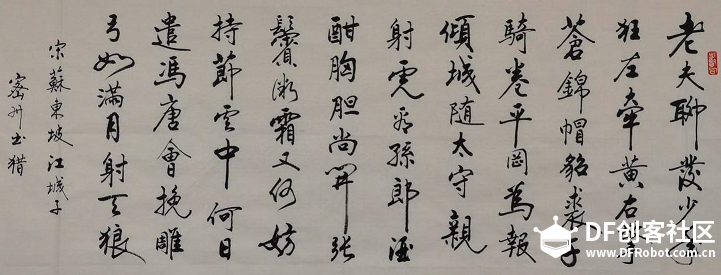 老夫聊發少年
狂左牽黃右擎
蒼錦帽貂裘千
騎卷平岡為報
傾城随太守親
射虎看孫郎酒
酣胸胆尚開張
鬢微霜又何妨
持節雲中何日
遣馮唐會挽雕
弓如滿月射天狼
宋蘇東坡江城子
密州出猎
DF创客社区
www.DFRobot.com.cn